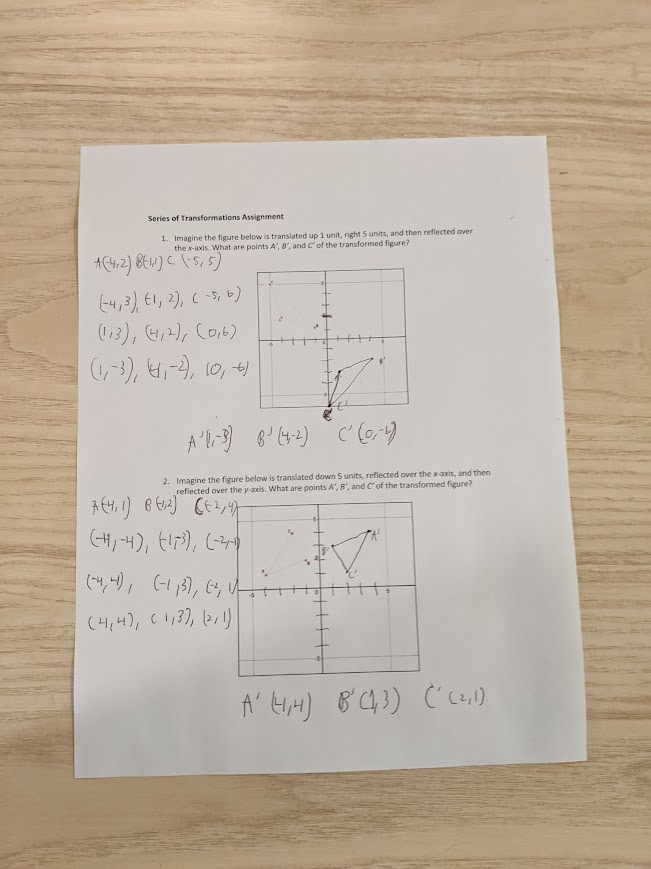 Series of Transformations Assignment
1. Imagine the figure below is translated up 1 unit, right 5 units, and then reflected over
the x-axis. What are points A', B', and C' of the transformed figure?
A(-4,2) B(-1,1) C (-5, 5)
(-4,3), (-1, 2), (-5, 6)
(1,3), (4,2), (0,6)
(1,-3), (4,-2), (0,-6)
B'
C'
A'(1,-3) B'(4,-2) C'(0,-6)
2. Imagine the figure below is translated down 5 units, reflected over the x-axis, and then
reflected over the y-axis. What are points A', B', and C' of the transformed figure?
A(-4,1) B(-1,2) C(-2,4)
(-4,-4), (-1,-3), (-2,-1)
(-4,4), (-1,3), (-2,1)
(4,4), (1,3), (2,1)
5
A'
B'
2
C'
-5
0
5
-5
A' (4,4) B'(1,3) C' (2,1)